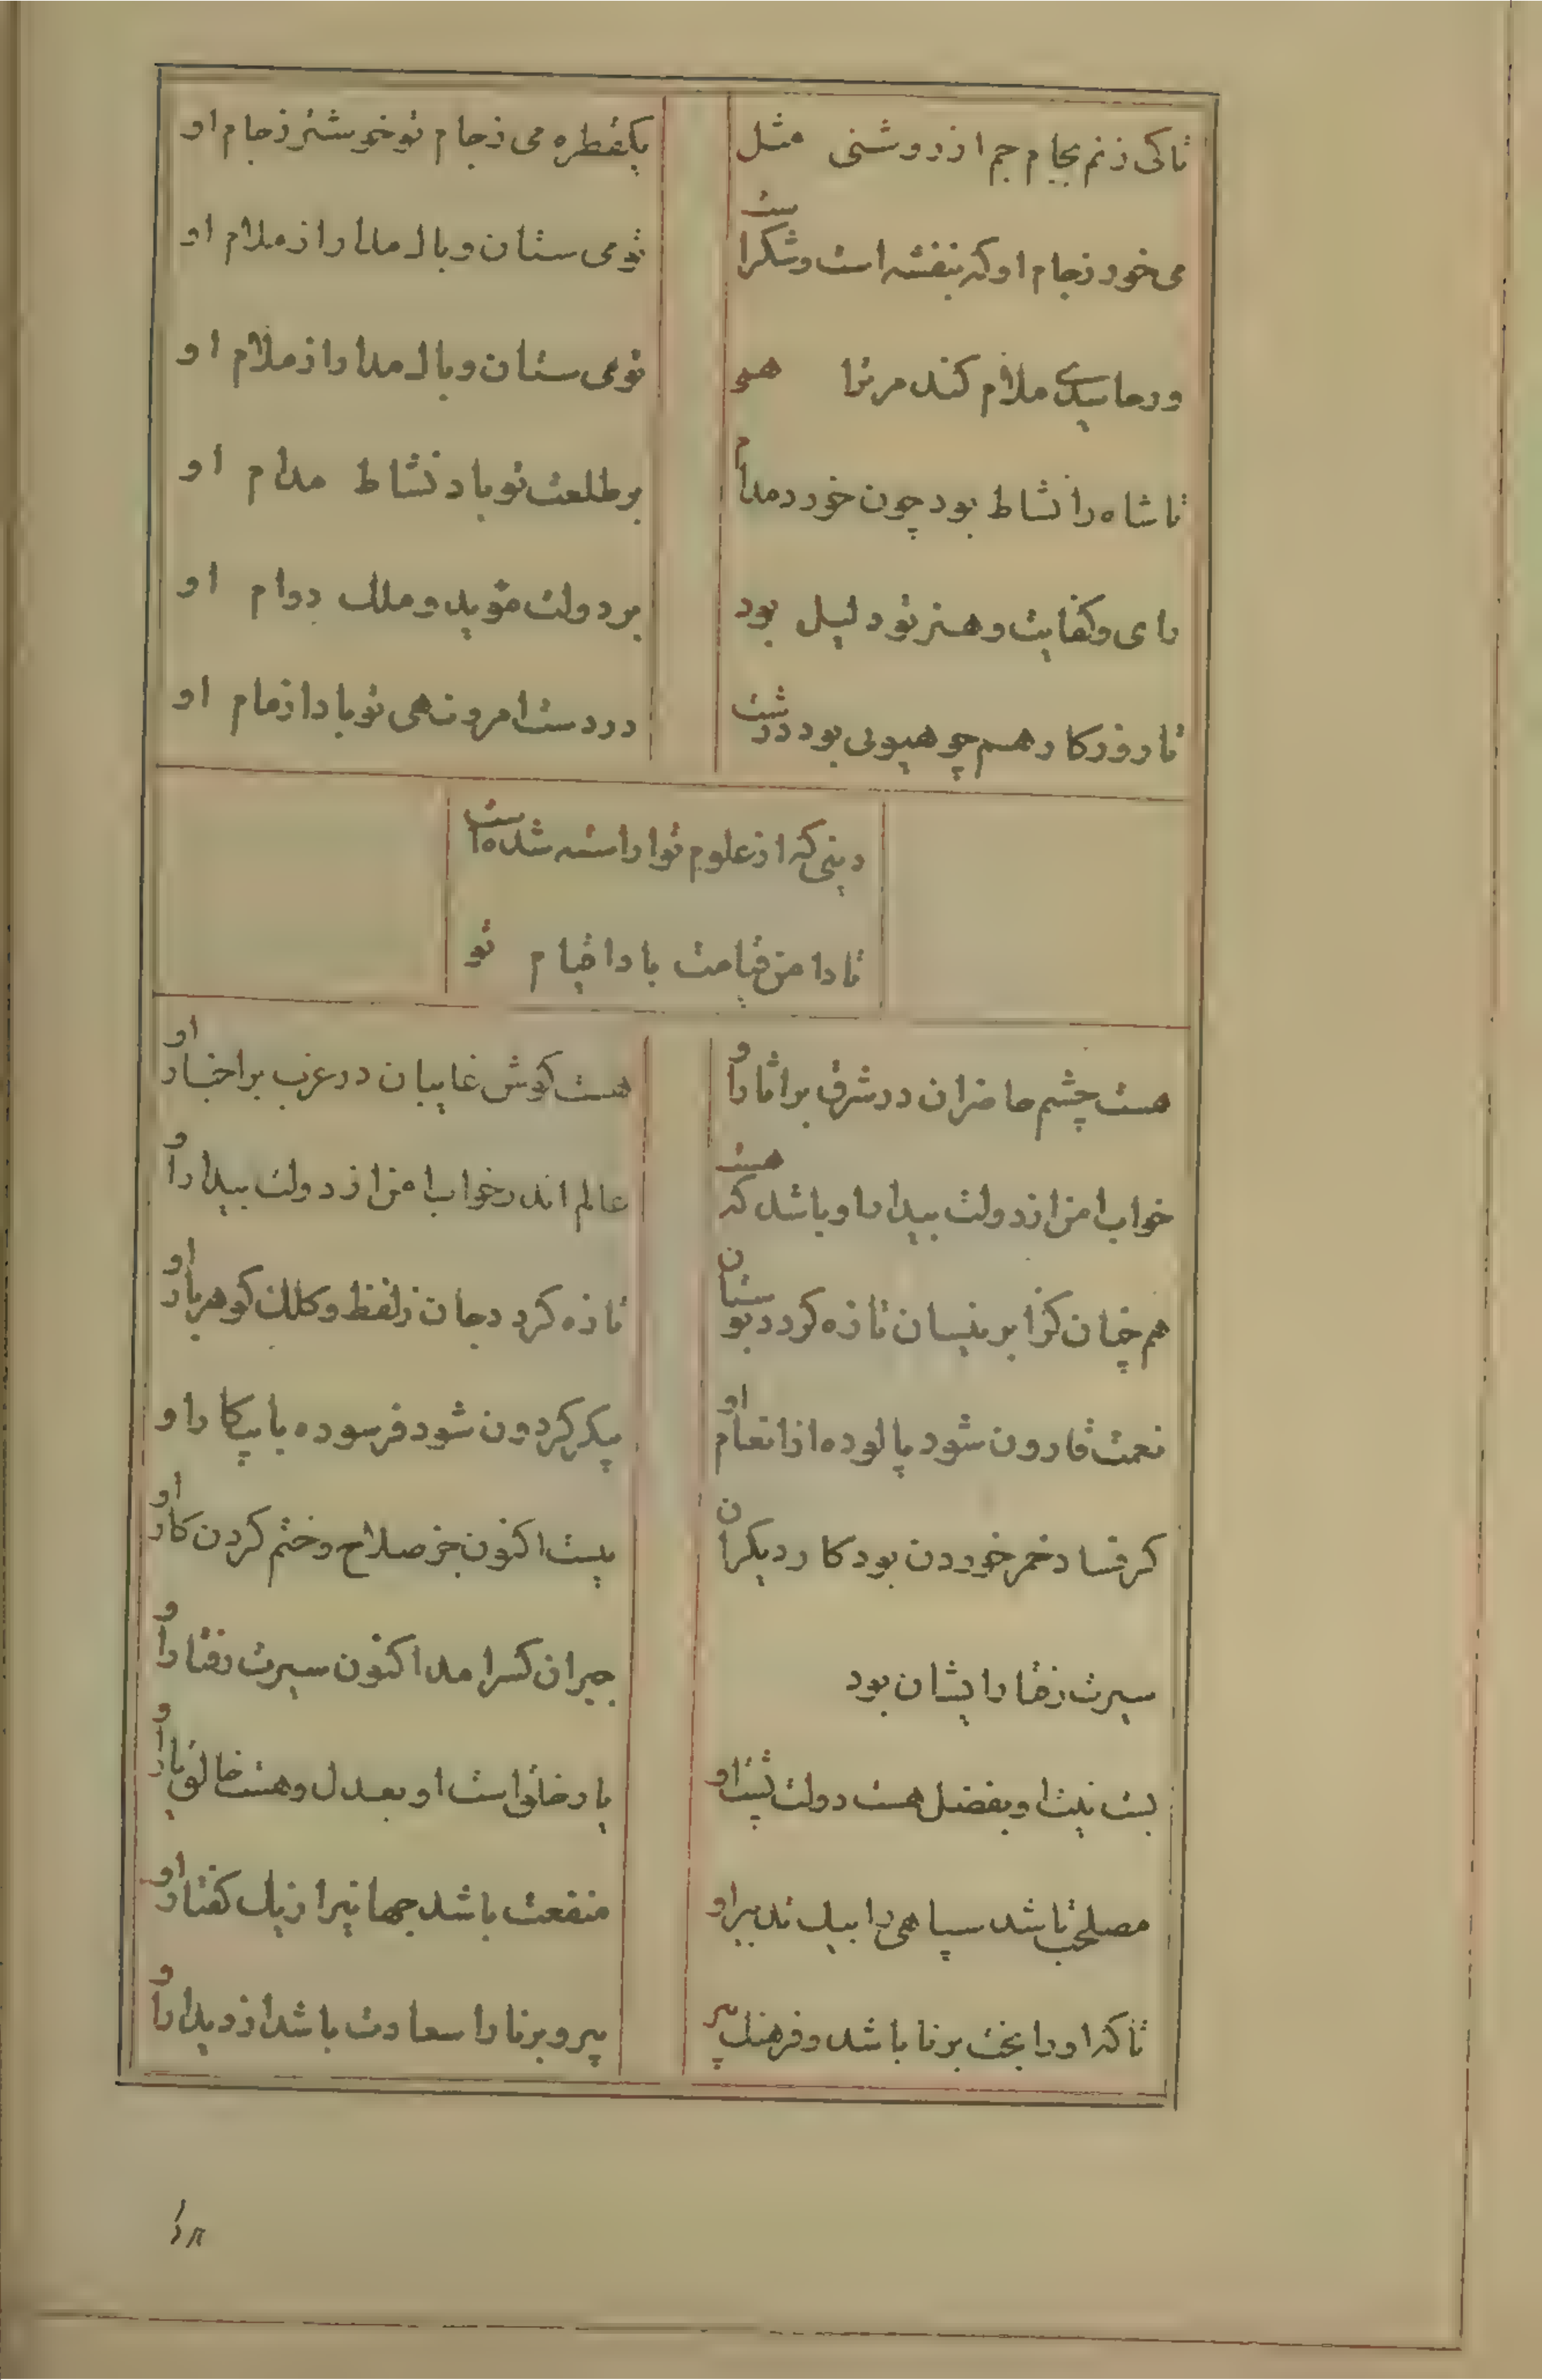 تاکی زنم بجام جم از روشنی مثل
یکقطره می زجام تو خوشتر زجام او
می خور زجام او که بنفشه است و شکراست
تو می ستان و بال مدارا ز ملام او
ور حاسدی ملام کند مر ترا همو
تو می ستان و بال مدارا ز ملام او
تا شاه را نشاط بود چون خورد مدام
بر طلعت تو باد نشاط مدام او
رای و کفایت و هنر تو دلیل بود
بر دولت مؤید و ملک دوام او
تا روزکار هم چو هیونی بود درشت
در دست امر و نهی تو بادا زمام او
دینی که از علوم تو اراسته شده است
تا دامن قیامت بادا قیام تو
هست چشم حاضران در شرق بر اثار او
هست کوش غایبان در غرب بر اخبار او
خواب امن از دولت بیدار او باشد که هست
عالم اندر خواب امن از دولت بیدار او
هم چنان کز ابر نیسان تازه کردد بوستان
تازه کردد جان زلفظ و کلک کوهربار او
نعمت قارون شود پالوده از انعام او
پیکر کردون شود فرسوده با پیکار او
کر فساد خمر خوردن بود کار دیکران
نیست اکنون جز صلاح و ختم کردن کار او
سیرت رفتار ایشان بود
جبران کسر امد اکنون سیرت رفتار او
نیت او بفضل هست دولت او
یار خلق است او بعدل و هست خالق یار او
مصلحت باشد سپاهی را بیک تدبیر او
منفعت باشد جهانیرا زیک کفتار او
تا که او را بخت برنا باشد و فرهنک پیر
پیر و برنا را سعادت باشد از دیدار او